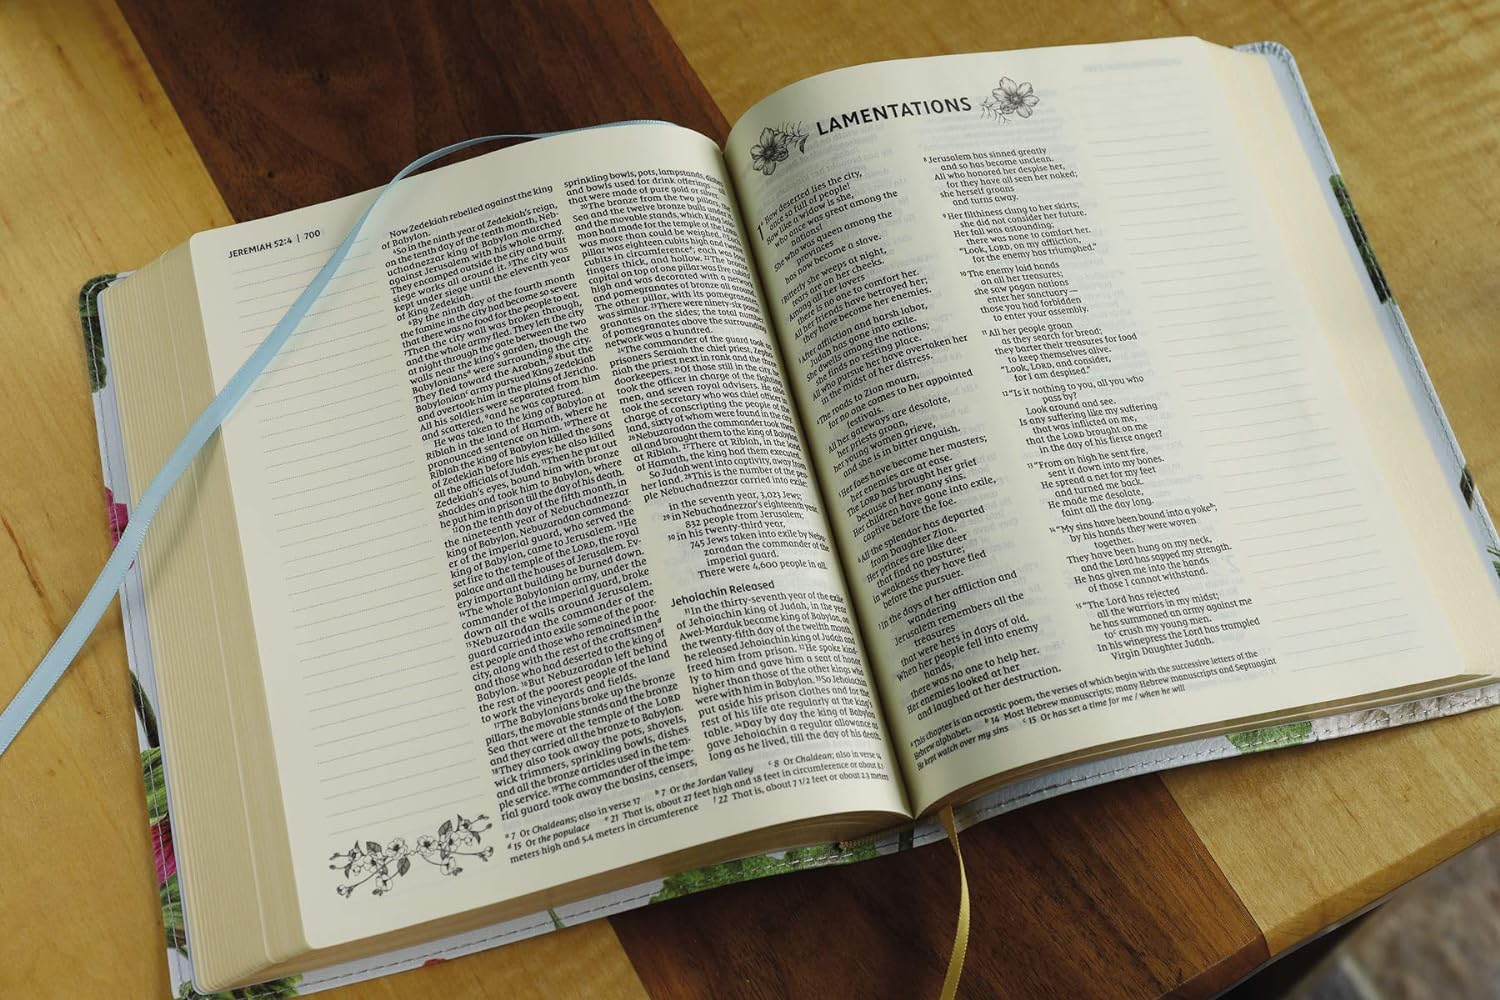 JEREMIAH 52:4 | 700
Now Zedekiah rebelled against the king
of Babylon.
⁴So in the ninth year of Zedekiah's reign,
on the tenth day of the tenth month, Neb-
uchadnezzar king of Babylon marched
against Jerusalem with his whole army.
They encamped outside the city and built
siege works all around it. ⁵The city was
kept under siege until the eleventh year
of King Zedekiah.
⁶By the ninth day of the fourth month
the famine in the city had become so severe
that there was no food for the people to eat.
⁷Then the city wall was broken through,
and the whole army fled. They left the city
at night through the gate between the two
walls near the king's garden, though the
Babylonians were surrounding the city.
They fled toward the Arabah, ⁸but the
Babylonian army pursued King Zedekiah
and overtook him in the plains of Jericho.
All his soldiers were separated from him
and scattered, ⁹and he was captured.
He was taken to the king of Babylon at
Riblah in the land of Hamath, where he
pronounced sentence on him. ¹⁰There at
Riblah the king of Babylon killed the sons
of Zedekiah before his eyes; he also killed
all the officials of Judah. ¹¹Then he put out
Zedekiah's eyes, bound him with bronze
shackles and took him to Babylon, where
he put him in prison till the day of his death.
¹²On the tenth day of the fifth month, in
the nineteenth year of Nebuchadnezzar
king of Babylon, Nebuzaradan command-
er of the imperial guard, who served the
king of Babylon, came to Jerusalem. ¹³He
set fire to the temple of the LORD, the royal
palace and all the houses of Jerusalem. Ev-
ery important building he burned down.
¹⁴The whole Babylonian army, under the
commander of the imperial guard, broke
down all the walls around Jerusalem.
¹⁵Nebuzaradan the commander of the
guard carried into exile some of the poor-
est people and those who remained in the
city, along with the rest of the craftsmen
and those who had deserted to the king of
Babylon. ¹⁶But Nebuzaradan left behind
the rest of the poorest people of the land
to work the vineyards and fields.
¹⁷The Babylonians broke up the bronze
pillars, the movable stands and the bronze
Sea that were at the temple of the LORD
and they carried all the bronze to Babylon.
¹⁸They also took away the pots, shovels,
wick trimmers, sprinkling bowls, dishes
and all the bronze articles used in the tem-
ple service. ¹⁹The commander of the impe-
rial guard took away the basins, censers,
sprinkling bowls, pots, lampstands, dishes
and bowls used for drink offerings — all
that were made of pure gold or silver.
²⁰The bronze from the two pillars, the
Sea and the twelve bronze bulls under it,
and the movable stands, which King Solo-
mon had made for the temple of the LORD,
was more than could be weighed. ²¹Each
pillar was eighteen cubits high and twelve
cubits in circumference; each was four
fingers thick, and hollow. ²²The bronze
capital on top of one pillar was five cubits
high and was decorated with a network
and pomegranates of bronze all around.
The other pillar, with its pomegranates,
was similar. ²³There were ninety-six pome-
granates on the sides; the total number
of pomegranates above the surrounding
network was a hundred.
²⁴The commander of the guard took as
prisoners Seraiah the chief priest, Zepha-
niah the priest next in rank and the three
doorkeepers. ²⁵Of those still in the city, he
took the officer in charge of the fighting
men, and seven royal advisers. He also
took the secretary who was chief officer in
charge of conscripting the people of the
land, sixty of whom were found in the city.
²⁶Nebuzaradan the commander took them
all and brought them to the king of Babylon
at Riblah. ²⁷There at Riblah, in the land
of Hamath, the king had them executed.
So Judah went into captivity, away from
her land. ²⁸This is the number of the peo-
ple Nebuchadnezzar carried into exile:
in the seventh year, 3,023 Jews;
²⁹in Nebuchadnezzar's eighteenth year,
832 people from Jerusalem;
³⁰in his twenty-third year,
745 Jews taken into exile by Nebu-
zaradan the commander of the
imperial guard.
There were 4,600 people in all.
Jehoiachin Released
³¹In the thirty-seventh year of the exile
of Jehoiachin king of Judah, in the year
Awel-Marduk became king of Babylon, on
the twenty-fifth day of the twelfth month,
he released Jehoiachin king of Judah and
freed him from prison. ³²He spoke kind-
ly to him and gave him a seat of honor
higher than those of the other kings who
were with him in Babylon. ³³So Jehoiachin
put aside his prison clothes and for the
rest of his life ate regularly at the king's
table. ³⁴Day by day the king of Babylon
gave Jehoiachin a regular allowance as
long as he lived, till the day of his death.
ᵃ 7 Or Chaldeans; also in verse 17 ᵇ 7 Or the Jordan Valley ᶜ 8 Or Chaldean; also in verse 14
ᵈ 15 Or the populace ᵉ 21 That is, about 27 feet high and 18 feet in circumference or about 8.1
meters high and 5.4 meters in circumference ᶠ 22 That is, about 7 1/2 feet or about 2.3 meters
LAMENTATIONS
1 ᵃHow deserted lies the city,
once so full of people!
How like a widow is she,
who once was great among the
nations!
She who was queen among the
provinces
has now become a slave.
²Bitterly she weeps at night,
tears are on her cheeks.
Among all her lovers
there is no one to comfort her.
All her friends have betrayed her;
they have become her enemies.
³After affliction and harsh labor,
Judah has gone into exile.
She dwells among the nations;
she finds no resting place.
All who pursue her have overtaken her
in the midst of her distress.
⁴The roads to Zion mourn,
for no one comes to her appointed
festivals.
All her gateways are desolate,
her priests groan,
her young women grieve,
and she is in bitter anguish.
⁵Her foes have become her masters;
her enemies are at ease.
The LORD has brought her grief
because of her many sins.
Her children have gone into exile,
captive before the foe.
⁶All the splendor has departed
from Daughter Zion.
Her princes are like deer
that find no pasture;
in weakness they have fled
before the pursuer.
⁷In the days of her affliction and
wandering
Jerusalem remembers all the
treasures
that were hers in days of old.
When her people fell into enemy
hands,
there was no one to help her.
Her enemies looked at her
and laughed at her destruction.
⁸Jerusalem has sinned greatly
and so has become unclean.
All who honored her despise her,
for they have all seen her naked;
she herself groans
and turns away.
⁹Her filthiness clung to her skirts;
she did not consider her future.
Her fall was astounding;
there was none to comfort her.
"Look, LORD, on my affliction,
for the enemy has triumphed."
¹⁰The enemy laid hands
on all her treasures;
she saw pagan nations
enter her sanctuary—
those you had forbidden
to enter your assembly.
¹¹All her people groan
as they search for bread;
they barter their treasures for food
to keep themselves alive.
"Look, LORD, and consider,
for I am despised."
¹²"Is it nothing to you, all you who
pass by?
Look around and see.
Is any suffering like my suffering
that was inflicted on me,
that the LORD brought on me
in the day of his fierce anger?
¹³"From on high he sent fire,
sent it down into my bones.
He spread a net for my feet
and turned me back.
He made me desolate,
faint all the day long.
¹⁴"My sins have been bound into a yokeᵇ;
by his hands they were woven
together.
They have been hung on my neck,
and the Lord has sapped my strength.
He has given me into the hands
of those I cannot withstand.
¹⁵"The Lord has rejected
all the warriors in my midst;
he has summoned an army against me
toᶜ crush my young men.
In his winepress the Lord has trampled
Virgin Daughter Judah.
ᵃ This chapter is an acrostic poem, the verses of which begin with the successive letters of the
Hebrew alphabet. ᵇ 14 Most Hebrew manuscripts; many Hebrew manuscripts and Septuagint
He kept watch over my sins ᶜ 15 Or has set a time for me / when he will